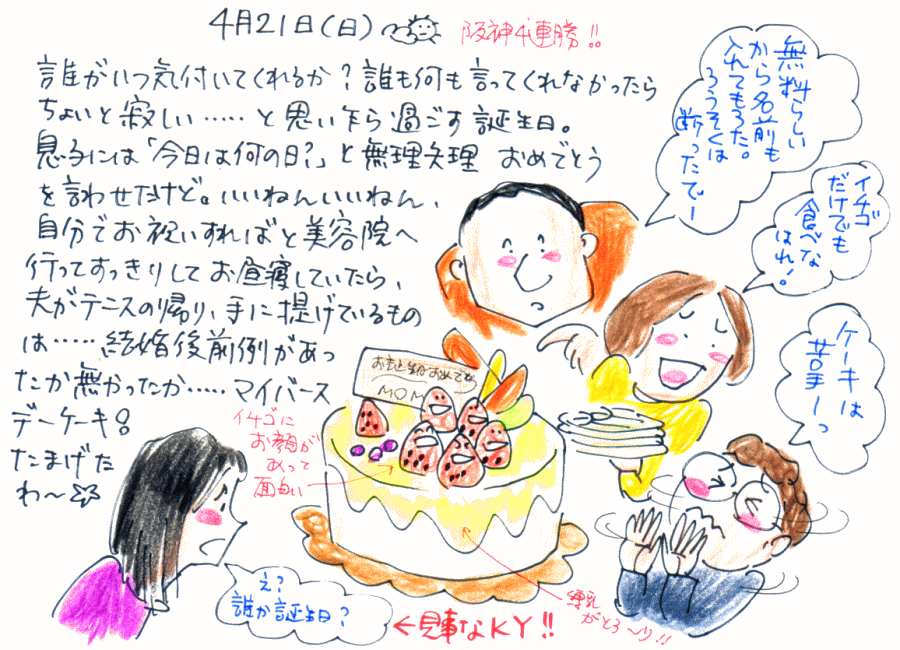 4月21日(日)
阪神4連勝!!
誰がいつ気付いてくれるか?誰も何も言ってくれなかったら
ちょいと寂しい……と思いながら過ごす誕生日。
息子には「今日は何の日?」と無理矢理 おめでとう
を言わせたけど。いいねんいいねん、
自分でお祝いすればと美容院へ
行ってすっきりしてお昼寝していたら、
夫がテニスの帰り、手に提げているもの
は……結婚後前例があっ
たか無かったか……マイバース
デーケーキ!
たまげた
わ〜
無料らしい
から名前も
入れてもろた。
ろうそくは
断ったでー
イチゴ
だけでも
食べな
はれ!
ケーキは
苦手ーっ
お誕生日おめでとう
MOM
イチゴに
お顔が
あって
面白い
練乳
がとろ〜り!!
え?
誰か誕生日?
←見事なKY!!